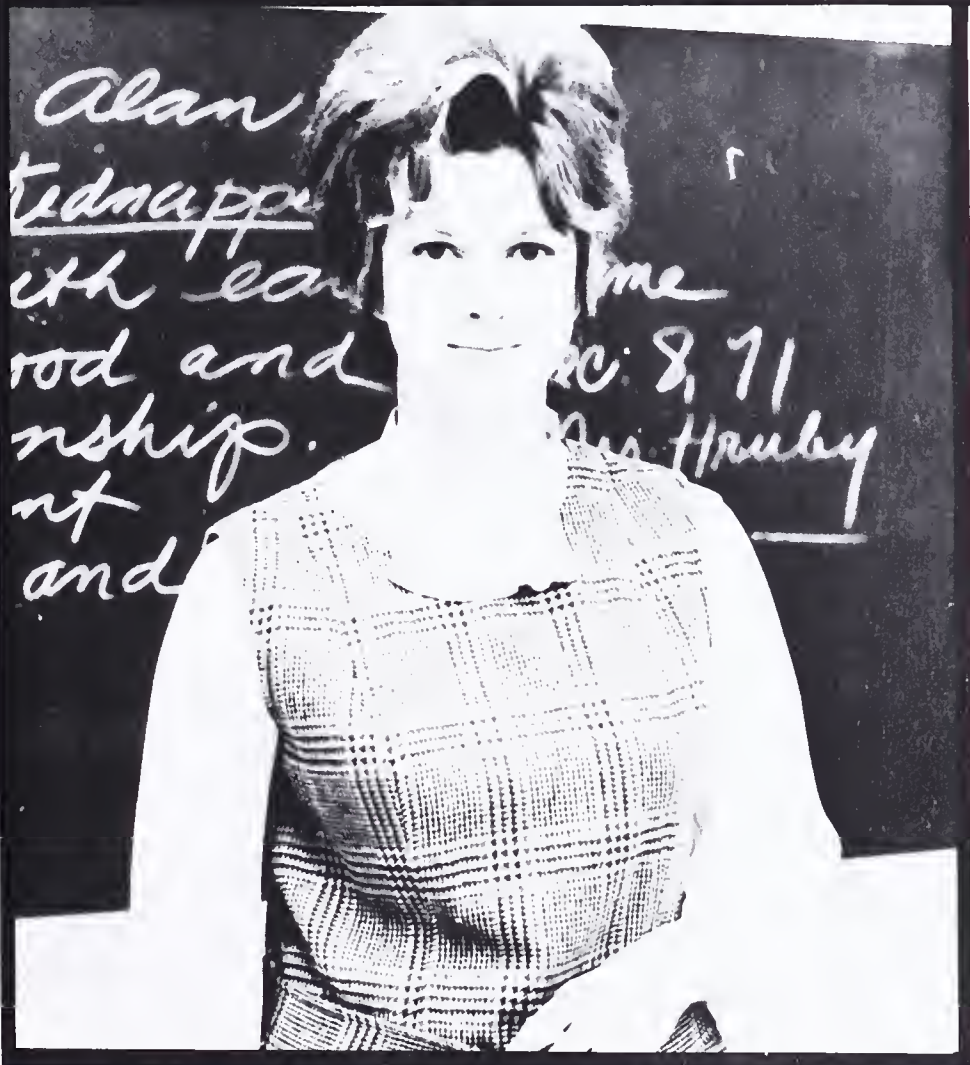 Alan
Kidnappe
ith ea me
ood and ec 8, 71
nship. Mrs Hruby
nt
and